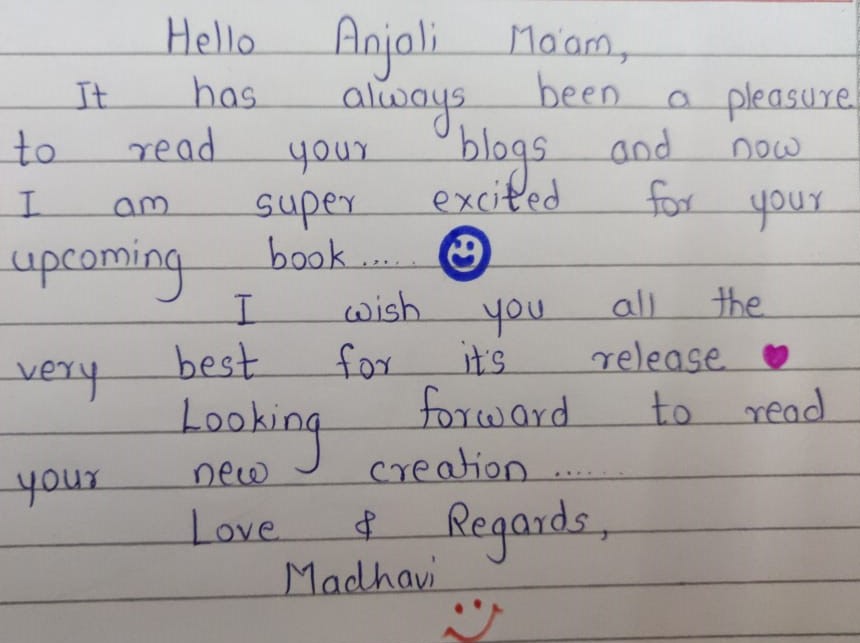 Hello Anjali Ma'am,
It has always been a pleasure
to read your blogs and now
I am super excited for your
upcoming book.....
I wish you all the
very best for it's release
Looking forward to read
your new creation ......
Love & Regards,
Madhavi